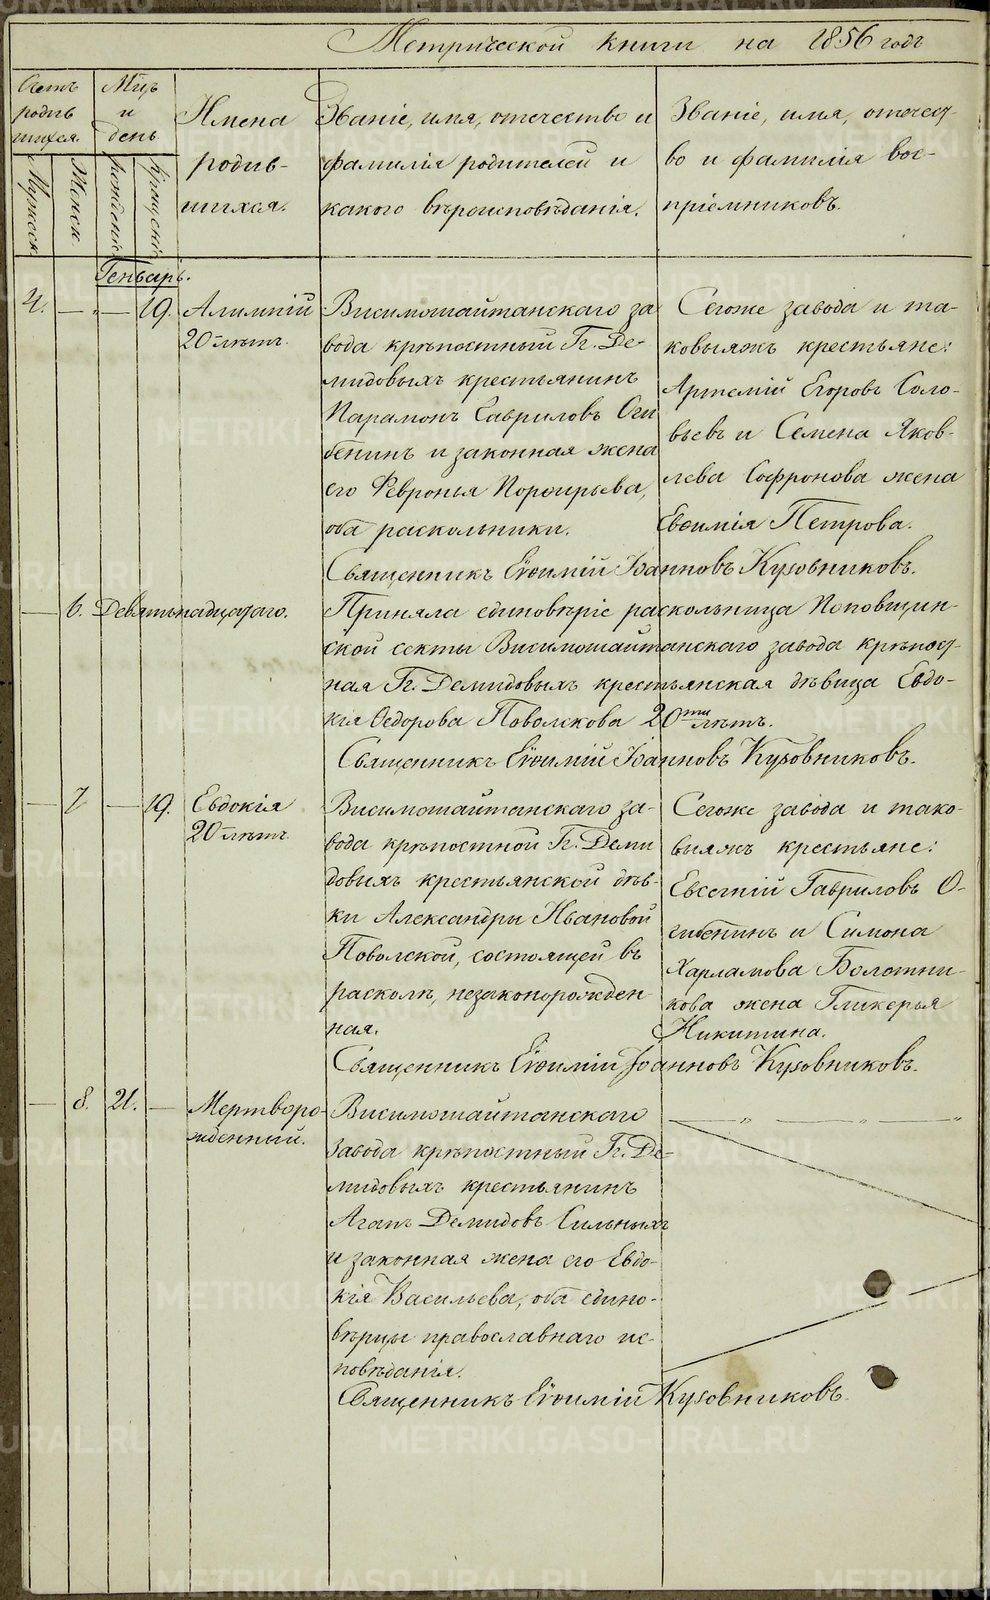 Метрической книги на 1856 годъ
Счетъ родив
шихся.
Мужеск.
Женск.
Мцъ
и
день
рожденія
крещенія
Имена
родив-
шихся.
Званіе, имя, отечество и
фамилія родителей и
какого вѣроисповѣданія.
Званіе, имя, отечест-
во и фамилія вос-
пріемниковъ.
Генварь.
4. — „ — 19.
Алимпій
20 лѣтъ.
Висимошайтанскаго за
вода крѣпостный Гг. Де-
мидовыхъ крестьянинъ
Парамонъ Гавриловъ Оги
бенинъ и законная жена
его Февронья Порфирьева,
оба раскольники.
Сегоже завода и та-
ковыяжъ крестьяне:
Артемій Егоровъ Соло-
вьевъ и Семена Яков-
лева Софронова жена
Евѳимія Петрова.
Священникъ Еѵѳимій Іоанновъ Кузовниковъ.
— 6. Девятьнадцатаго.
Приняла единовѣріе раскольница Поповщин-
ской секты Висимошайтанскаго завода крѣпост-
ная Гг. Демидовыхъ крестьянская дѣвица Евдо-
кія Ѳедорова Поволскова 20ти лѣтъ.
Священникъ Еѵѳимій Іоанновъ Кузовниковъ.
— 7 — 19.
Евдокія
20 лѣтъ
Висимошайтанскаго за-
вода крѣпостной Гг. Деми
довыхъ крестьянской дѣв-
ки Александры Ивановой
Поволской, состоящей въ
расколѣ, незаконорожден
ная.
Сегоже завода и тако-
выяжъ крестьяне:
Евсегній Гавриловъ О-
гибенинъ и Симона
Харламова Болотни-
кова жена Гликерья
Никитина.
Священникъ Еѵѳимій Іоанновъ Кузовниковъ.
— 8. 21. —
Мертворо-
жденный.
Висимошайтанскаго
завода крѣпостный Гг. Де-
мидовыхъ крестьянинъ
Агапъ Демидовъ Сильныхъ
и законная жена его Евдо-
кія Васильева, оба едино-
вѣрцы православнаго ис-
повѣданія.
— „ — „ — „
Священникъ Еѵѳимій Кузовниковъ.
METRIKI.GASO-URAL.RU